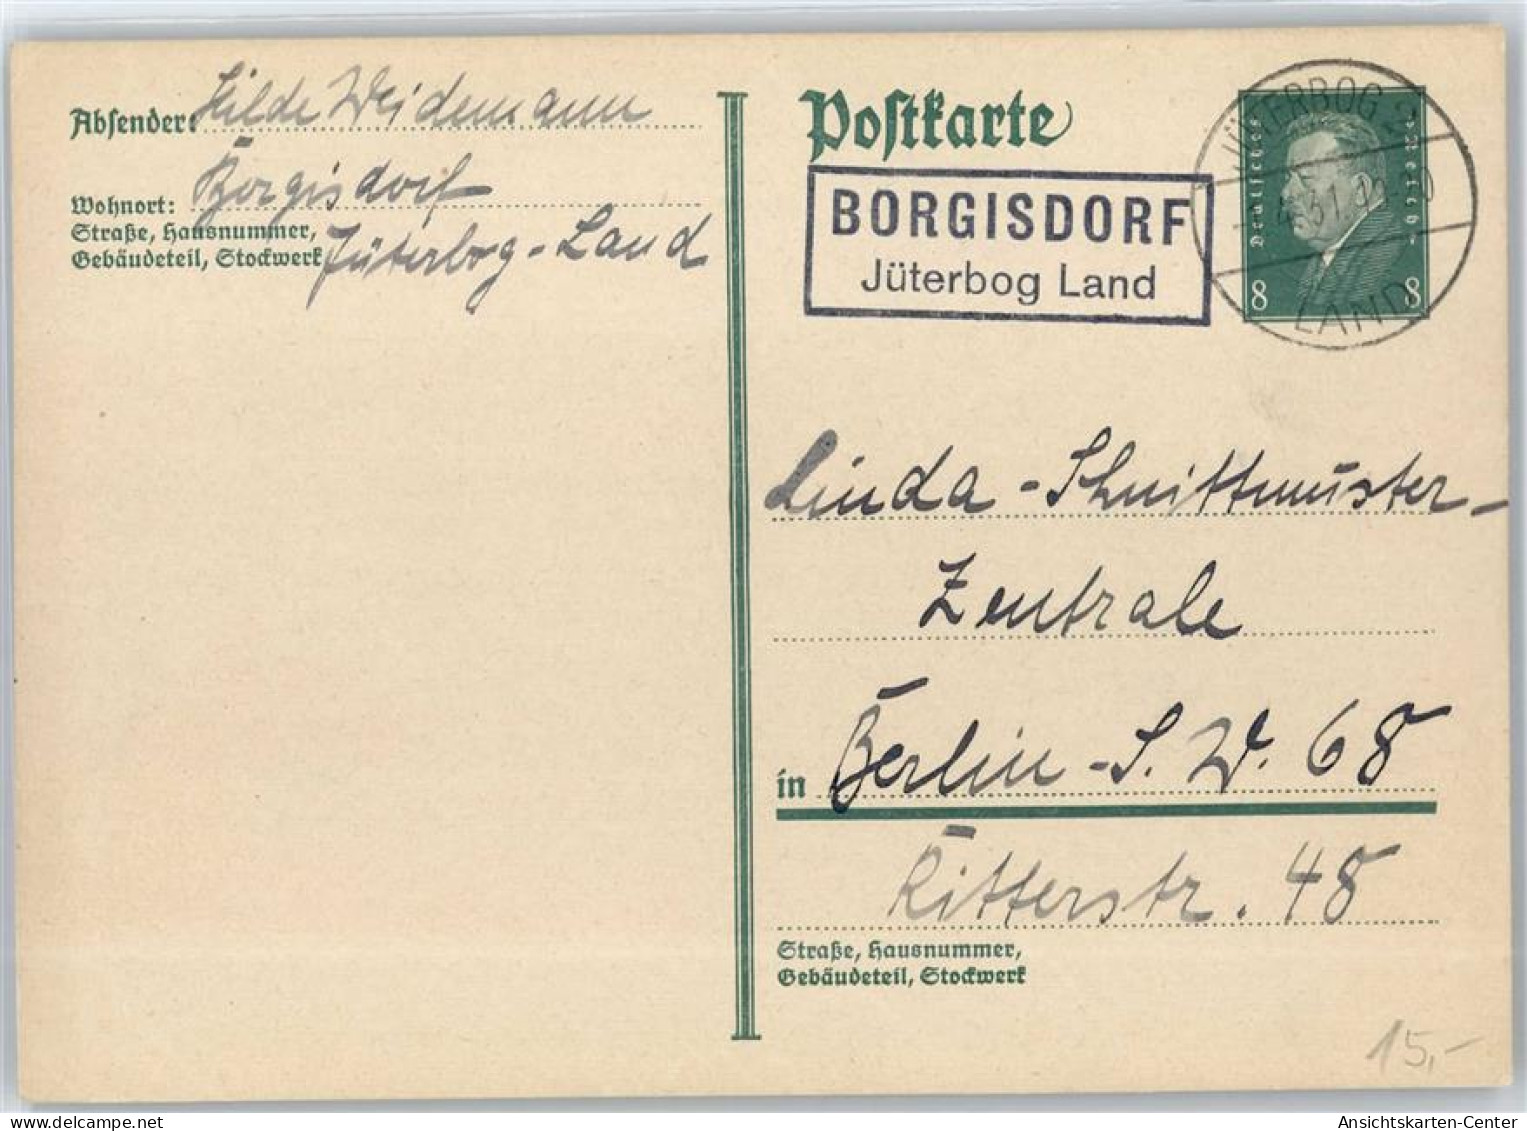 Absender: Hilde Weidemann
Wohnort: Borgisdorf
Straße, Hausnummer,
Gebäudeteil, Stockwerk Jüterbog-Land
Postkarte
BORGISDORF
Jüterbog Land
JÜTERBOG 2
LAND
Deutsches Reich
8 8
Linda-Schnittmuster-
Zentrale
in Berlin-S.W. 68
Ritterstr. 48
Straße, Hausnummer,
Gebäudeteil, Stockwerk
15,-
Ansichtskarten-Center